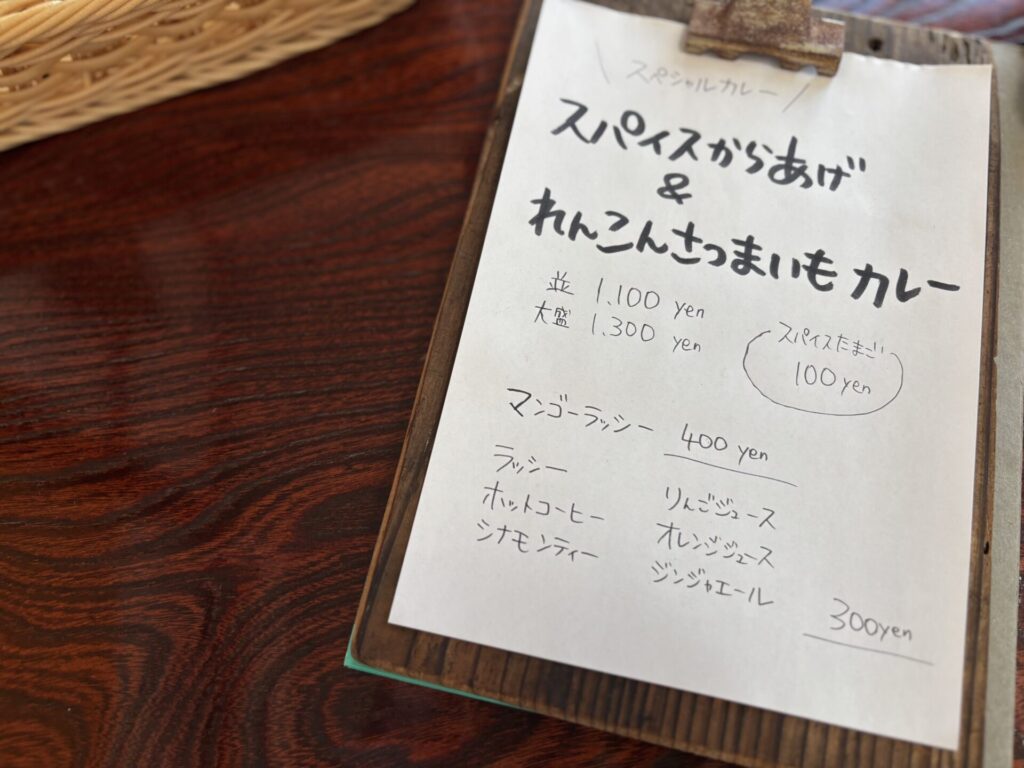 ＼スペシャルカレー／
スパイスからあげ
&
れんこんさつまいもカレー
並 1.100 yen
大盛 1.300 yen
スパイスたまご
100yen
マンゴーラッシー 400 yen
ラッシー
ホットコーヒー
シナモンティー
りんごジュース
オレンジジュース
ジンジャエール
300yen